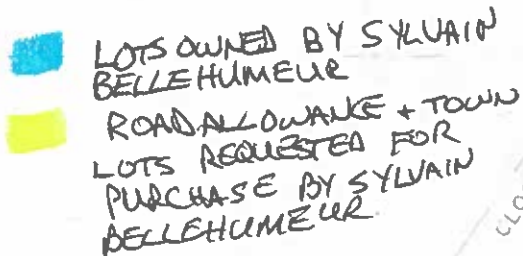 LOTS OWNED BY SYLVAIN
BELLEHUMEUR
ROAD ALLOWANCE + TOWN
LOTS REQUESTED FOR
PURCHASE BY SYLVAIN
BELLEHUMEUR
CLO